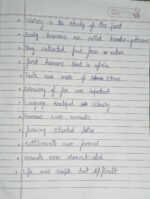 History is the study of the past
Early humans are called hunter-gatherers
They collected food from nature
first humans lived in africa
Tools were made of stone
Discovery of fire was important
Language developed slowly
humans were nomadic
farming started later
settlements were formed
animals were domesticated
Life was simple but difficult